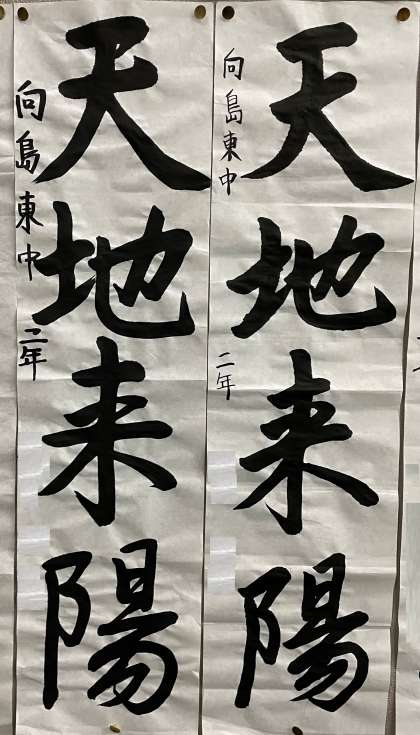 天地来陽
向島東中 二年
天地来陽
向島東中 二年